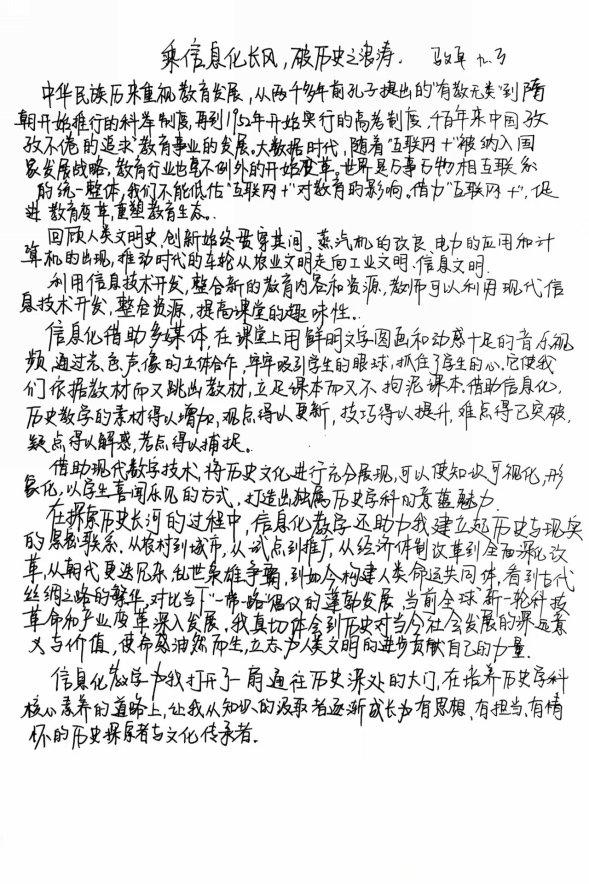 乘信息化长风，破历史之浪涛．
中华民族历来重视教育发展，从两千多年前孔子提出的"有教无类"到隋
朝开始推行的科举制度，再到1952年开始实行的高考制度，千百年来中国孜
孜不倦的追求教育事业的发展。大数据时代，随着"互联网+"被纳入国
家发展战略，教育行业也毫不例外的开始变革。世界是万事万物相互联系
的统一整体，我们不能低估"互联网+"对教育的影响。借力"互联网+"，促
进教育变革，重塑教育生态。
回顾人类文明史，创新始终贯穿其间，蒸汽机的改良、电力的应用和计
算机的出现，推动时代的车轮从农业文明走向工业文明、信息文明．
利用信息技术开发，整合新的教育内容和资源，教师可以利用现代信
息技术开发，整合资源，提高课堂的趣味性．
信息化借助多媒体，在课堂上用鲜明文字图画和动感十足的音乐视
频，通过光、色、声、像的立体合作，牢牢吸引学生的眼球，抓住了学生的心。它使我
们依据教材而又跳出教材，立足课本而又不拘泥课本．借助信息化，
历史教学的素材得以增加，观点得以更新，技巧得以提升，难点得已突破，
疑点得以解惑，考点得以捕捉。
借助现代数字技术，将历史文化进行充分展现，可以使知识可视化，形
象化，以学生喜闻乐见的方式，打造出独属历史学科的意蕴魅力．
在探索历史长河的过程中，信息化教学还助力我建立起历史与现实
的思想联系．从农村到城市，从试点到推广，从经济体制改革到全面深化改
革，从朝代更迭兄弟，乱世枭雄争霸，到如今构建人类命运共同体，看到古代
丝绸之路的繁华，对比当下一带一路倡议的蓬勃发展，当前全球新一轮科技
革命和产业变革深入发展，我真切体会到历史对当今社会发展的深远意
义与价值，使命感油然而生，立志为人类文明的进步贡献自己的力量．
信息化教学为我打开了一扇通往历史深处的大门，在培养历史学科
核心素养的道路上，让我从知识的汲取者逐渐成长为有思想、有担当、有情
怀的历史探索者与文化传承者。